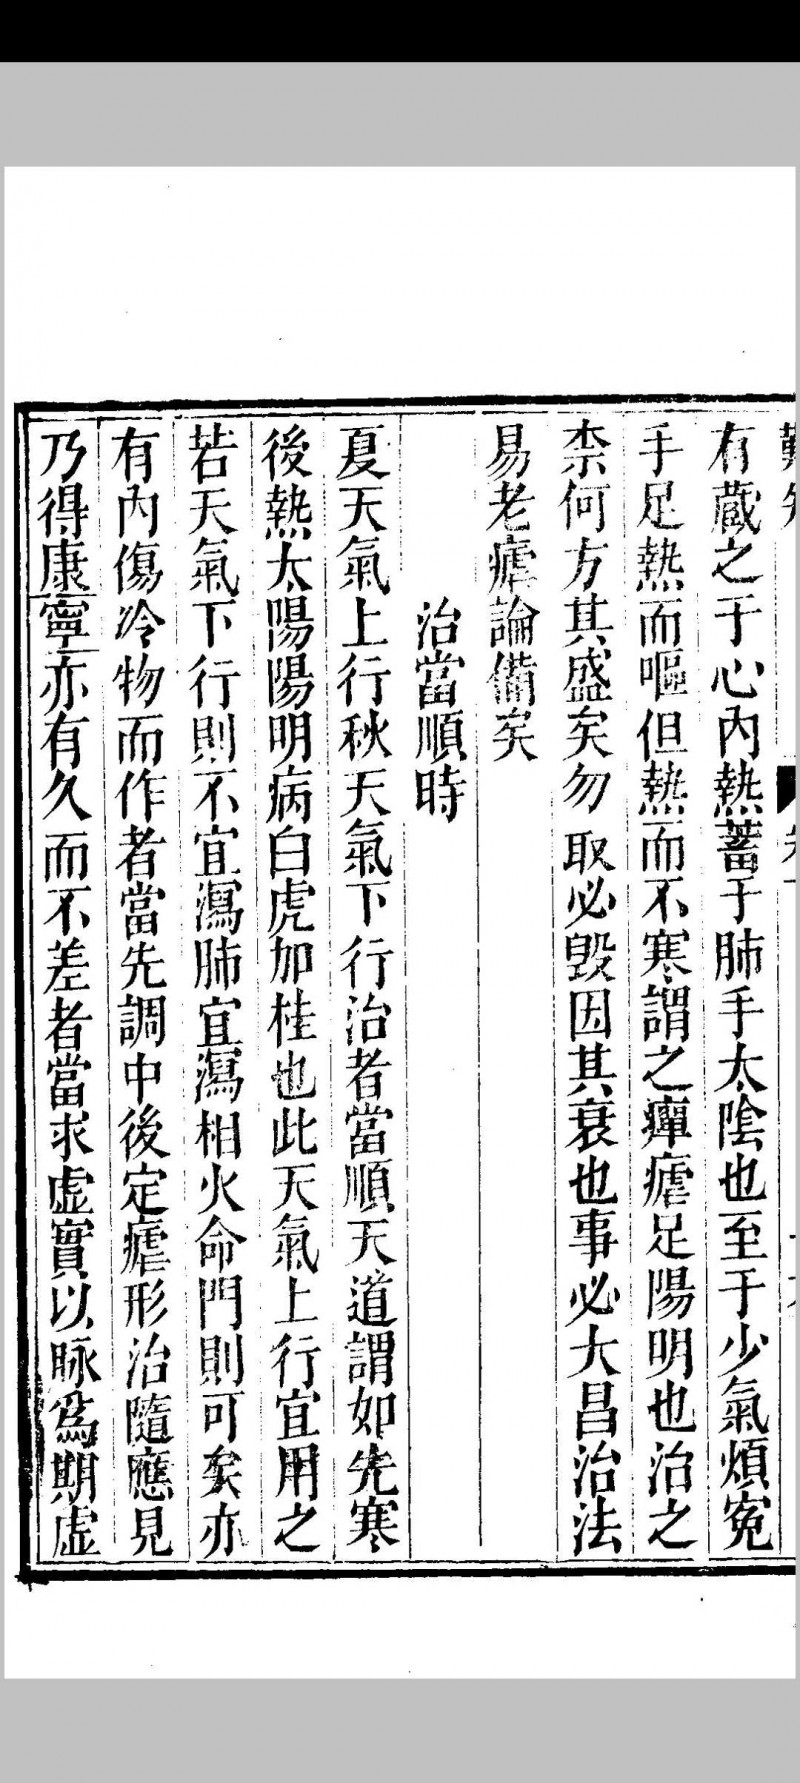 有藏之于心內熱蓄于肺手太陰也至于少氣煩寃
手足熱而嘔但熱而不寒謂之癉瘧足陽明也治之
柰何方其盛矣勿取必毀因其衰也事必大昌治法
易老瘧論備矣
治當順時
夏天氣上行秋天氣下行治者當順天道謂如先寒
後熱太陽陽明病白虎加桂也此天氣上行宜用之
若天氣下行則不宜瀉肺宜瀉相火命門則可矣亦
有內傷冷物而作者當先調中後定瘧形治隨應見
乃得康寧亦有久而不差者當求虛實以脉爲期虛